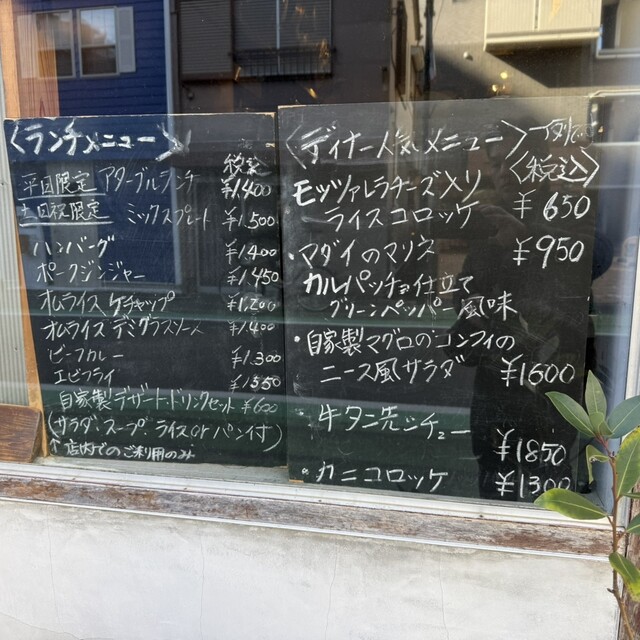 〈ランチメニュー〉
税込
平日限定 アターブルランチ ¥1.400
土日祝限定 ミックスプレート ¥1.500
ハンバーグ ¥1.400
ポークジンジャー ¥1.450
オムライス ケチャップ ¥1.200
オムライス デミグラスソース ¥1.400
ビーフカレー ¥1.300
エビフライ
自家製デザート・ドリンクセット ¥600
(サラダ・スープ・ライスorパン付)
↑店内でのご利用のみ
〈ディナー人気メニュー〉
〈税込〉
モッツァレラチーズ入り
ライスコロッケ ¥650
・マダイのマリネ ¥950
カルパッチョ仕立て
グリーンペッパー風味
・自家製マグロのコンフィの
ニース風サラダ ¥1600
・牛タン シチュー ¥1850
・カニコロッケ ¥1300